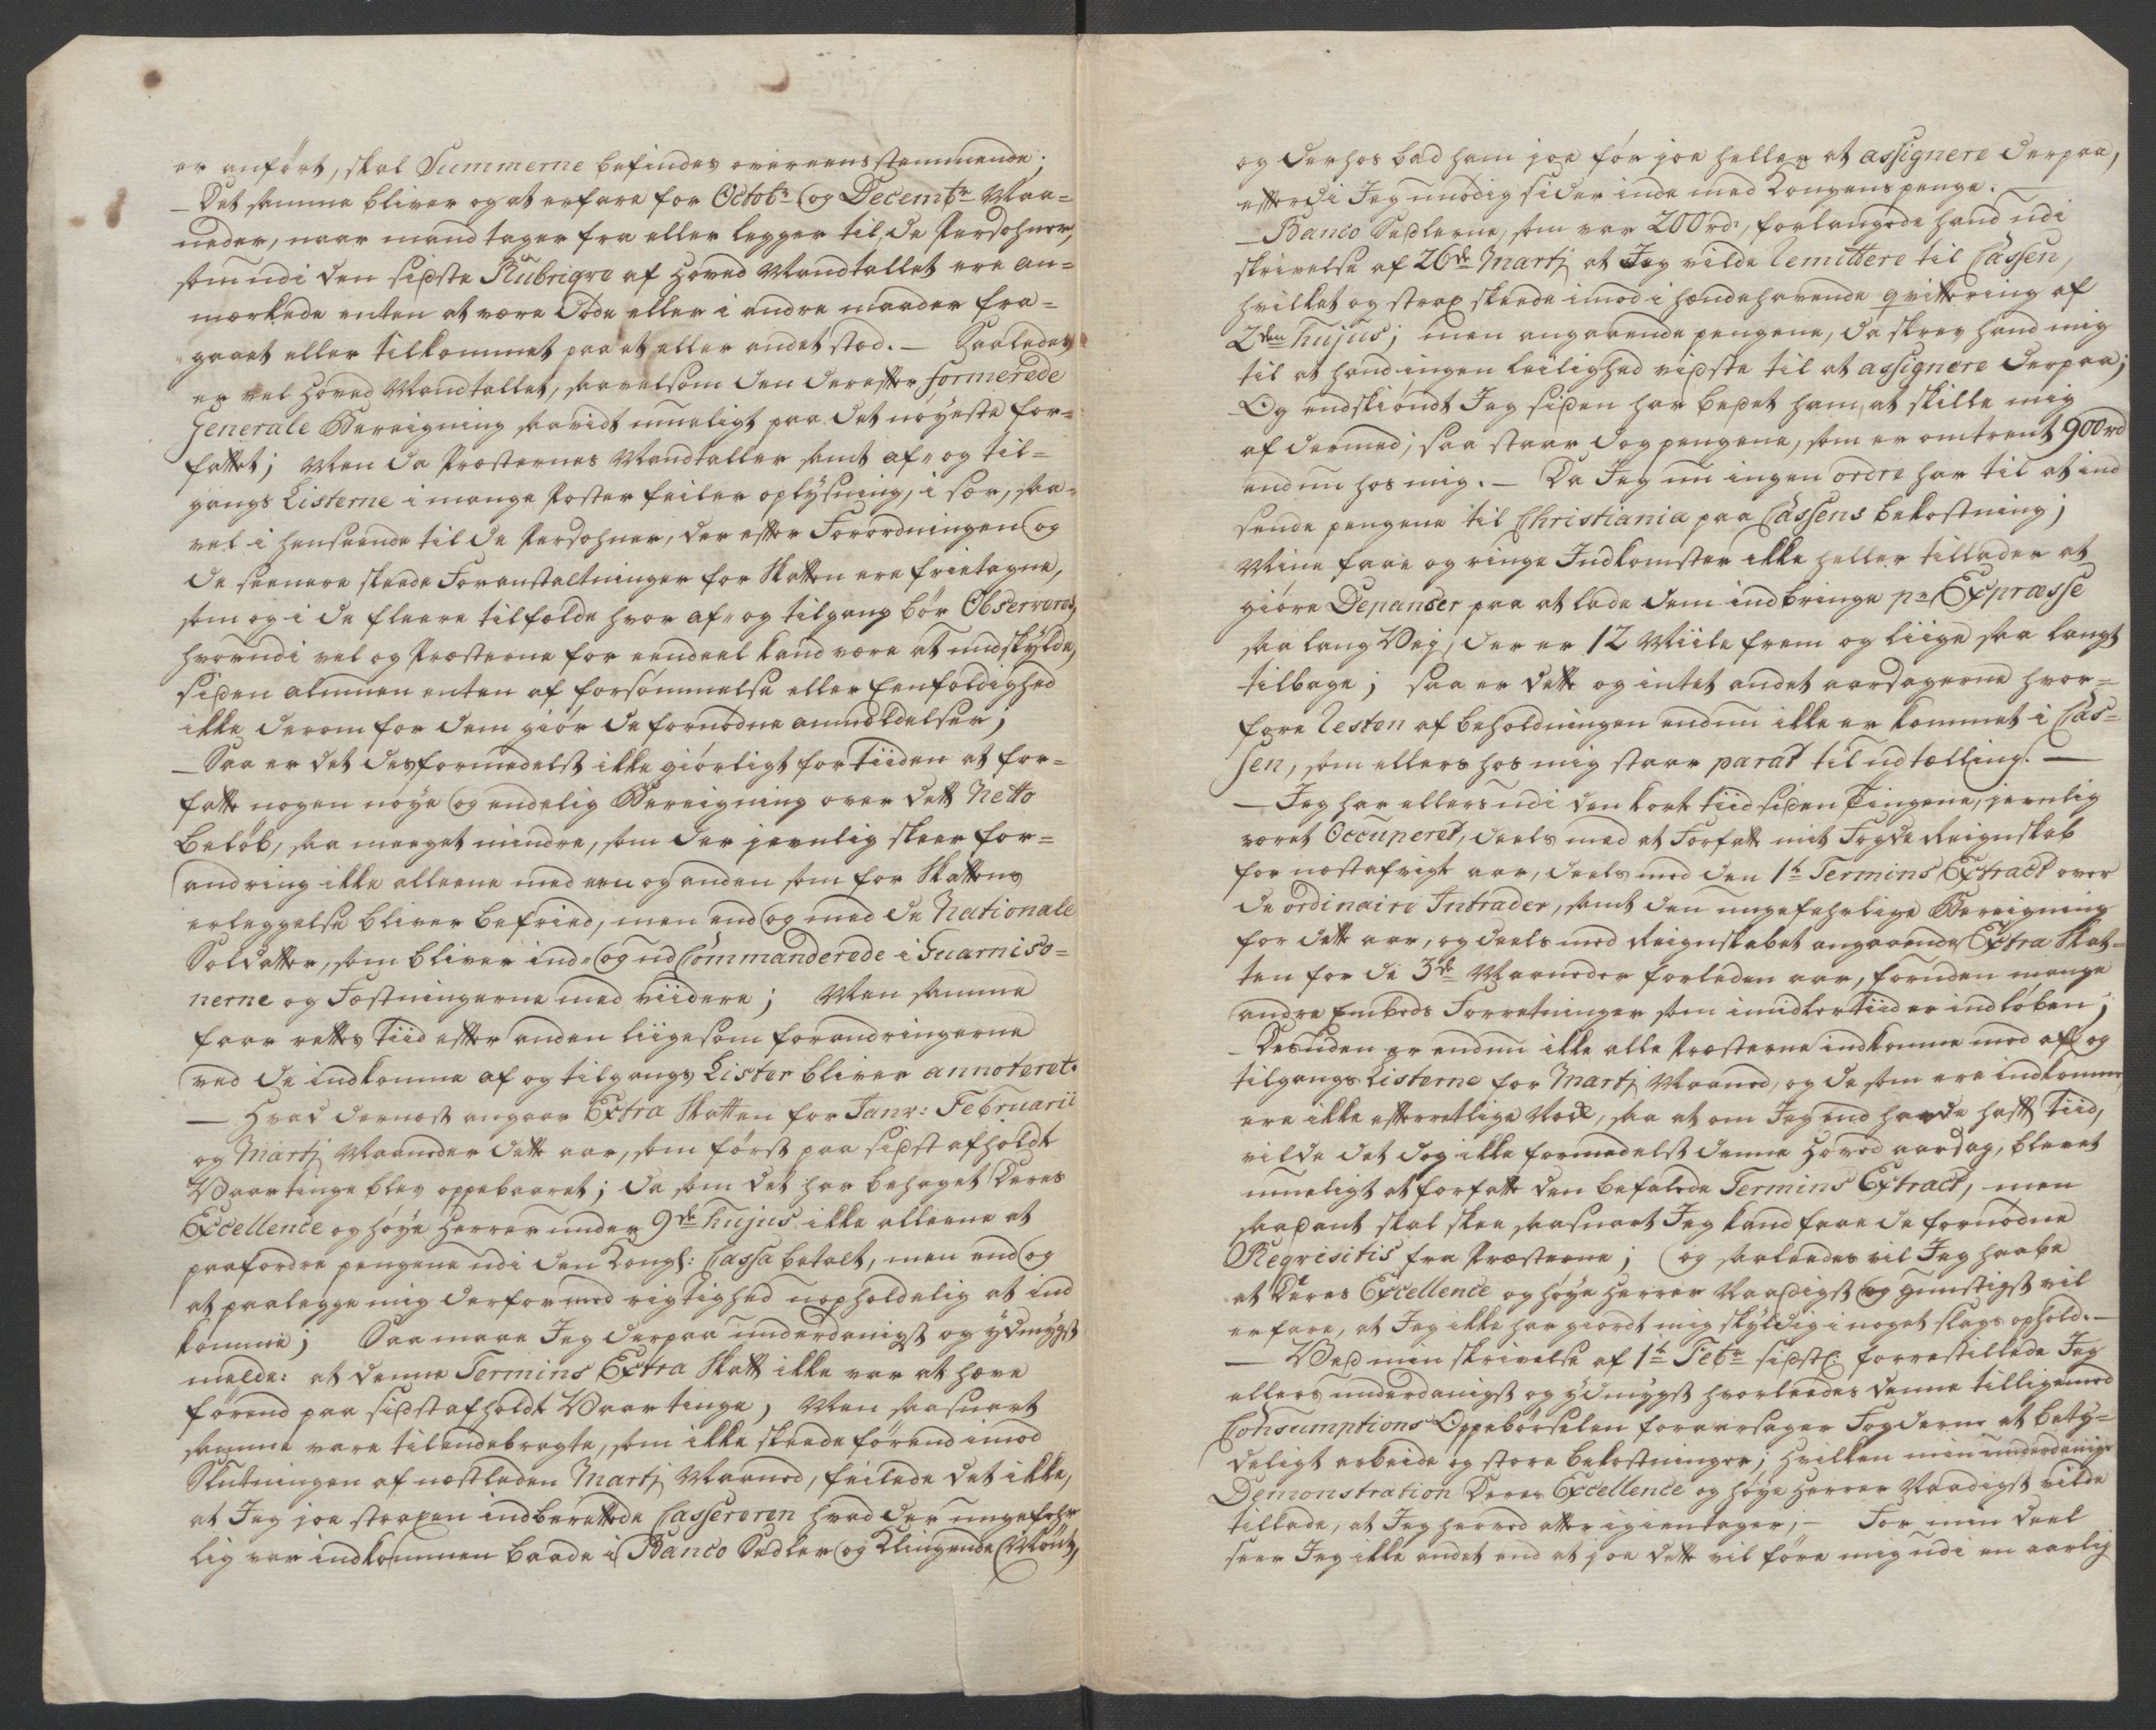 er anført, skal Summerne befindes overeensstemmende;
– Det samme bliver og at erfare for Octobr og Decembr Maa=
neder, naar mand tager fra eller legger til, de Persohner,
som udi den sidste Rubriqve af Hoved Mandtallet ere an=
mærkede enten at være døde eller i andre maader fra=
gaaet eller tilkommet paa et eller andet stæd. – Saaledes
er vel Hoved Mandtallet, saavelsom den derefter formerede
Generale Bereigning saavidt mueligt paa det nøyeste for=
fattet; Men da Præsternes Mandtaller samt af- og til=
gangs Listerne i mange Poster feiler oplysning, i sær, saa=
vel i henseende til de Persohner, der efter Forordningen og
de seenere skeede Foranstaltninger for Skatten ere frietagne,
som og i de fleere tilfælde hvor af- og tilgang bør Observeres,
hvorudi vel og Præsterne for eendeel kand være at undskylde,
siden almuen enten af forsømmelse eller Eenfoldighed
ikke derom for dem giør de fornødne anmældelser;
– Saa er det desformedelst ikke giørligt for tiiden at for=
fatte nogen nøye og endelig Bereigning over dett Netto
Beløb, saa meeget mindre, som der jevnlig skeer for=
andring ikke alleene med een og anden som for Skattens
erleggelse bliver befried, men end og med de Nationale
Soldatter, som bliver ind- og ud Commanderede i Guarniso=
nerne og Fæstningerne med viidere; Men samme
faar rettes tiid efter anden liigesom forandringerne
ved de indkomne af og tilgangs Lister bliver annoteret.
– Hvad dernæst angaar Extra Skatten for Janr: Februarii
og Martj Maaneder dette aar, som først paa sidst afholdte
Vaartinge blev oppebaaret; da som det har behaget Deres
Excellence og høye Herrer under 9de hujus ikke alleene at
paafordre pengene udi den Kongl: Cassa betalt, men end og
at paalegge mig derfor med rigtighed uopholdelig at ind
komme; Saa maae Jeg derpaa underdanigst og ydmygst
melde: at denne Termins Extra Skatt ikke var at hæve
førend paa sidstafholdt Vaartinge, Men saasnart
samme vare tilendebragte, som ikke skeede førend imod
Slutningen af næstleden Martj Maaned, feilede det ikke,
at Jeg joe straxen indberettede Casseroren hvad der ungefehr
lig var indkommen baade i Banco Sedler og Klingende Mønt,
og derhos bad ham joe før joe heller at assignere derpaa,
efterdi Jeg unødig sidder inde med Kongens penge. –
– Banco Sedlerne, som var 200 rd, forlangede hand udi
skrivelse af 26de Martj at Jeg vilde remittere til Cassen,
hvilket og strax skeede imod i hændehavende qvittering af
2den hujus; men angaaende pengene, da skrev hand mig
til at hand ingen leilighed vidste til at assignere derpaa;
Og endskiøndt Jeg siden har bedet ham, at skille mig
af dermed; saa staar dog pengene, som er omtrent 900 rd
endnu hos mig. – Da Jeg nu ingen ordre har til at ind
sende pengene til Christiania paa Cassens bekostning;
Mine faae og ringe Indkomster ikke heller tillader at
giøre Depanser paa at lade dem indbringe pr Expræsse
saa lang Vej, der er 12 Miile frem og liige saa langt
tilbage; saa er dette og intet andet aarsagerne hvor=
fore resten af beholdningen endnu ikke er kommet i Cas=
sen, som ellers hos mig staar parat til udtælling. –
– Jeg har ellers udi den kort tiid siden Tingene, jevnlig
været Occuperet, deels med at Forfatte mit Fogde Reignskab
for næstafvigte aar, deels med den 1te Termins Extract over
de ordinaire Intrader, samt den ungefehrlige Bereigning
for dette aar, og deels med Reignskabet angaaende Extra Skat=
ten for de 3de Maaneder forleden aar, foruden mange
andre Embeds Forretninger som imidlertiid er indløben;
– Desuden er endnu ikke alle Præsterne indkomne med af og
tilgangs Listerne for Martj Maaned, og de som ere indkomne
ere ikke efterretlige nok, saa at om Jeg end havde hafft tiid,
vilde det dog ikke formedelst denne Hoved aarsag, blevet
mueligt at forfatte den befalede Termins Extract, men
saadant skal skee saasnart Jeg kand faae de fornødne
Reqvisitis fra Præsterne; og saaleedes vil Jeg haabe
at Deres Excellence og høye Herrer Naadigst og gunstigst vil
erfare, at Jeg ikke har giordt mig skyldig i noget slags ophold. –
– Ved min skrivelse af 1te Febr sidstl: forrestillede Jeg
ellers underdanigst og ydmygst hvorleedes denne tilligemed
Consumptions Oppebørselen foraarsager Fogderne et bety=
deligt arbeide og store bekostninger; hvilken min underdanige
Demonstration Deres Excellence og høye Herrer Naadigst vilde
tillade, at Jeg herved atter igientager, – For min deel
seer Jeg ikke andet end at joe dette vil føre mig udi en aarlig